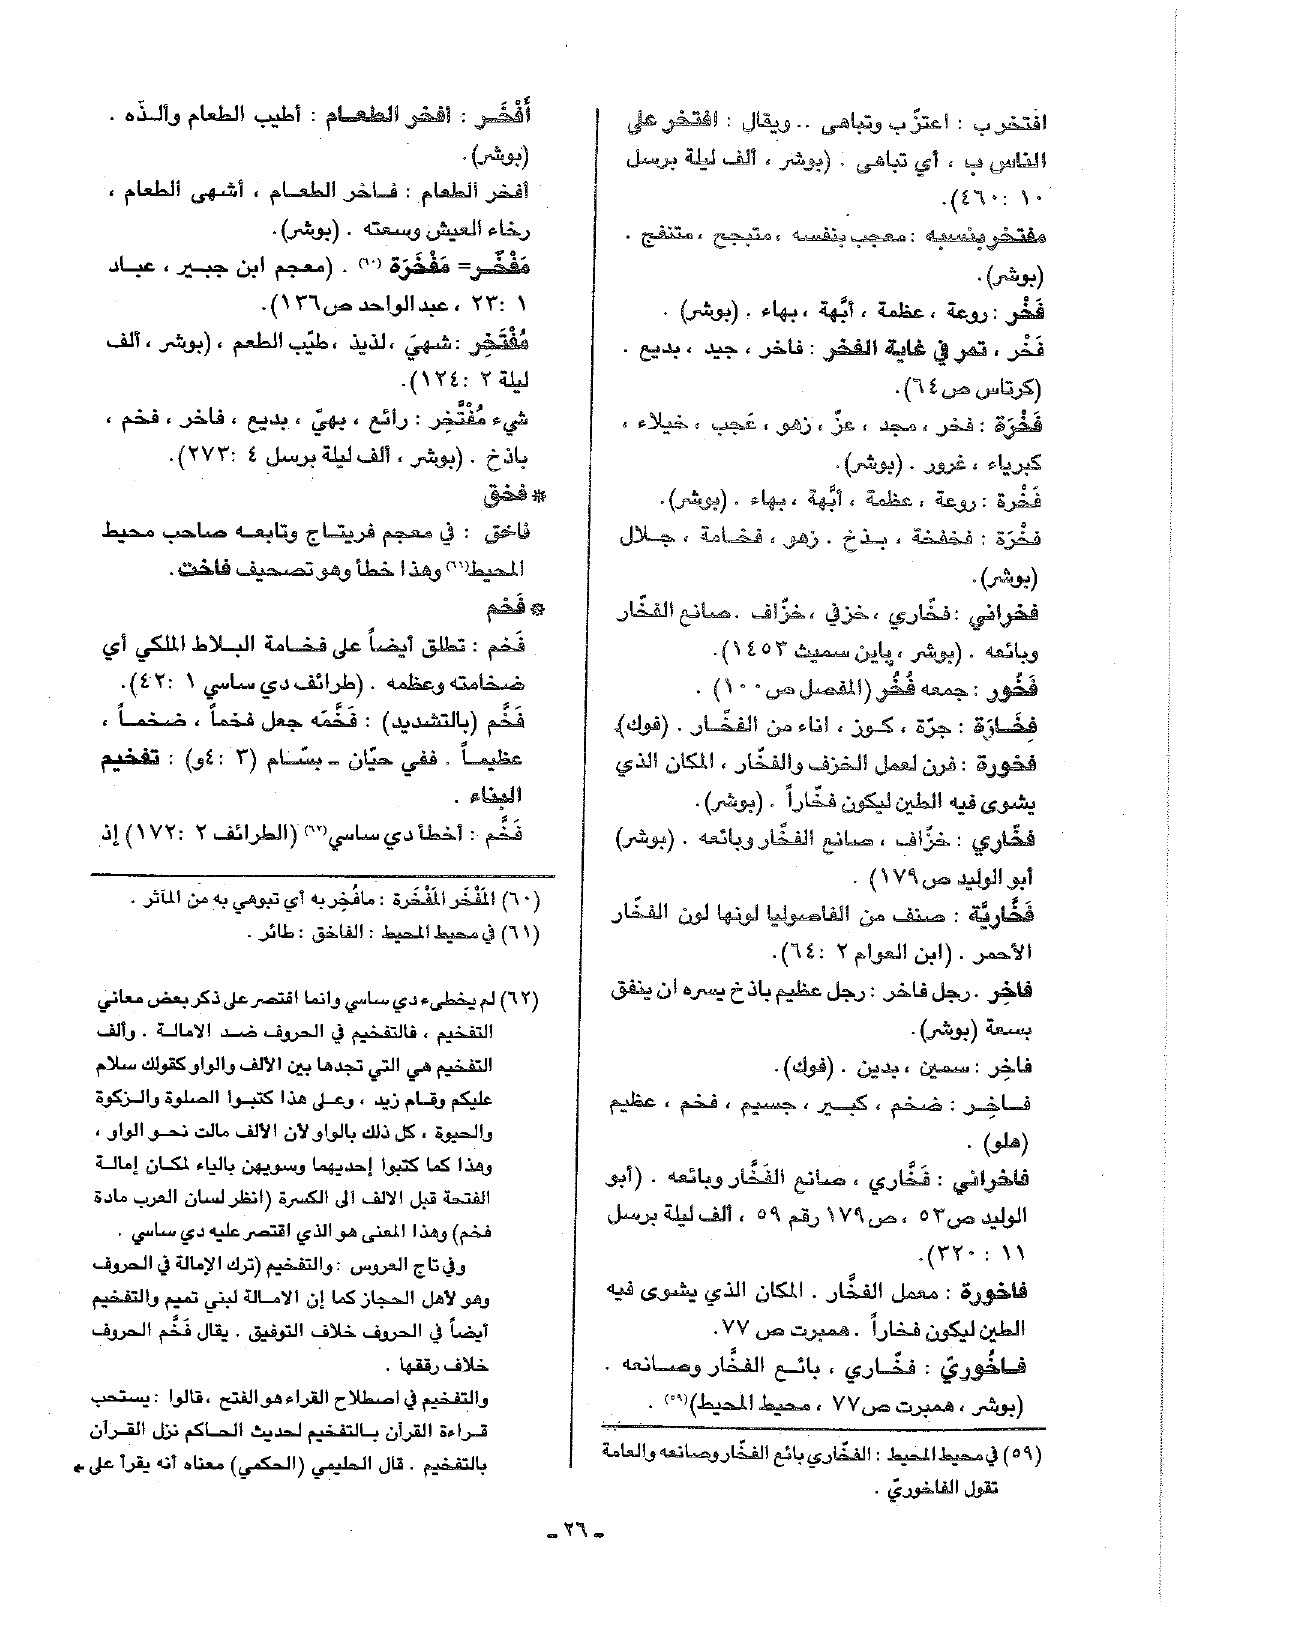 افتخر ب : اعتزّ ب وتباهى .. ويقال : افتخر على
الناس ب ، أي تباهى . (بوشر ، ألف ليلة برسل
١٠ :٤٦٠).
مفتخر بنسبه : معجب بنفسه ، متبجح ، متنفج .
(بوشر).
فَخْر : روعة ، عظمة ، أبَّهة ، بهاء . (بوشر) .
فَخْر ، تمر في غاية الفخر : فاخر ، جيد ، بديع .
(كرتاس ص٦٤).
فَخْرَة : فخر ، مجد ، عزّ ، زهو ، عَجب ، خيلاء ،
كبرياء ، غرور . (بوشر).
فَخْرة : روعة ، عظمة ، أبَّهة ، بهاء . (بوشر).
فَخْرَة : فخفخة ، بذخ . زهو ، فخامة ، جلال
(بوشر).
فخراني : فخّاري ، خزفي ، خزّاف . صانع الفخّار
وبائعه . (بوشر ، پاين سميث ١٤٥٣).
فَخُور : جمعه فُخُر (المفصل ص١٠٠) .
فِخَّارَة : جرّة ، كوز ، اناء من الفخّار . (فوك).
فخورة : فرن لعمل الخزف والفخّار ، المكان الذي
يشوى فيه الطين ليكون فخّاراً . (بوشر).
فخّاري : خزّاف ، صانع الفخّار وبائعه . (بوشر)
أبو الوليد ص١٧٩) .
فَخَّاريَّة : صنف من الفاصوليا لونها لون الفخّار
الأحمر . (ابن العوام ٢ :٦٤).
فاخِر . رجل فاخر : رجل عظيم باذخ يسره ان ينفق
بسعة (بوشر).
فاخِر : سمين ، بدين . (فوك).
فاخِر : ضخم ، كبير ، جسيم ، فخم ، عظيم
(هلو) .
فاخراني : فَخَّاري ، صانع الفَخَّار وبائعه . (أبو
الوليد ص٥٣ ، ص١٧٩ رقم ٥٩ ، ألف ليلة برسل
١١ : ٣٢٠).
فاخورة : معمل الفخَّار . المكان الذي يشوى فيه
الطين ليكون فخاراً . همبرت ص ٧٧.
فاخُوريّ : فخّاري ، بائع الفخَّار وصانعه .
(بوشر ، همبرت ص٧٧ ، محيط المحيط)(٥٩) .
(٥٩) في محيط المحيط : الفخّاري بائع الفخّار وصانعه والعامة
تقول الفاخوريّ .
أَفْخَر : افخر الطعام : أطيب الطعام وألذّه .
(بوشر).
أفخر الطعام : فاخر الطعام ، أشهى الطعام ،
رخاء العيش وسعته . (بوشر).
مَفْخَر= مَفْخَرَة (٦٠) . (معجم ابن جبير ، عباد
١ :٢٣ ، عبد الواحد ص١٣٦).
مُفْتَخِر : شهيّ ، لذيذ ، طيّب الطعم ، (بوشر ، ألف
ليلة ٢ :١٢٤).
شيء مُفْتَخِر : رائع ، بهيّ ، بديع ، فاخر ، فخم ،
باذخ . (بوشر ، ألف ليلة برسل ٤ :٢٧٣).
* فخق
فاخق : في معجم فريتاج وتابعه صاحب محيط
المحيط(٦١) وهذا خطأ وهو تصحيف فاخت.
* فَخم
فَخم : تطلق أيضاً على فخامة البلاط الملكي أي
ضخامته وعظمه . (طرائف دي ساسي ١ :٤٢).
فَخَّم (بالتشديد) : فَخَّمَه جعل فخماً ، ضخماً ،
عظيماً . ففي حيّان ـ بسّام (٣ :٤و) : تفخيم
البناء .
فَخَّم : أخطأ دي ساسي(٦٢) (الطرائف ٢ :١٧٢) إذ
(٦٠) المَفْخَر المَفْخَرة : مافُخِر به أي تبوهي به من المآثر .
(٦١) في محيط المحيط : الفاخق : طائر .
(٦٢) لم يخطىء دي ساسي وانما اقتصر على ذكر بعض معاني
التفخيم ، فالتفخيم في الحروف ضد الامالة . وألف
التفخيم هي التي تجدها بين الألف والواو كقولك سلام
عليكم وقام زيد ، وعلى هذا كتبوا الصلوة والزكوة
والحيوة ، كل ذلك بالواو لأن الألف مالت نحو الواو ،
وهذا كما كتبوا إحديهما وسويهن بالياء لمكان إمالة
الفتحة قبل الالف الى الكسرة (انظر لسان العرب مادة
فخم) وهذا المعنى هو الذي اقتصر عليه دي ساسي .
وفي تاج العروس : والتفخيم (ترك الإمالة في الحروف
وهو لأهل الحجاز كما إن الامالة لبني تميم والتفخيم
أيضاً في الحروف خلاف التوفيق . يقال فَخَّم الحروف
خلاف رققها .
والتفخيم في اصطلاح القراء هو الفتح ، قالوا : يستحب
قراءة القرآن بالتفخيم لحديث الحاكم نزل القرآن
بالتفخيم . قال الحليمي (الحكمي) معناه أنه يقرأ على ←
ـ ٢٦ ـ